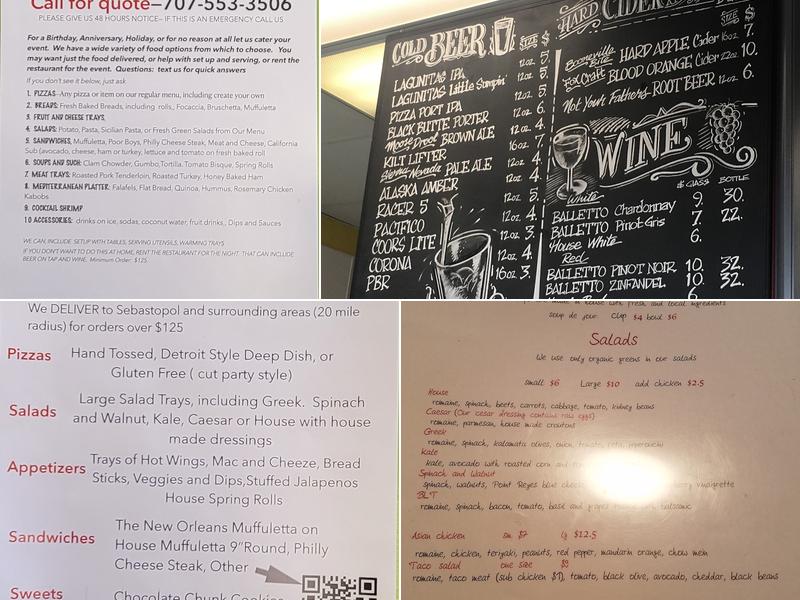 Call for quote—707-553-3506
PLEASE GIVE US 48 HOURS NOTICE– IF THIS IS AN EMERGENCY CALL US
For a Birthday, Anniversary, Holiday, or for no reason at all let us cater your
event. We have a wide variety of food options from which to choose. You
may want just the food delivered, or help with set up and serving, or rent
the restaurant for the event. Questions: text us for quick answers
If you don't see it below, just ask
1. PIZZAS–Any pizza or item on our regular menu, including create your own
2. BREADS: Fresh Baked Breads, including rolls,, Focaccia, Bruschetta, Muffuletta
3. FRUIT AND CHEESE TRAYS,
4. SALADS: Potato, Pasta, Sicilian Pasta, or Fresh Green Salads from Our Menu
5. SANDWICHES, Muffuletta, Poor Boys, Philly Cheese Steak, Meat and Cheese, California
Sub (avocado, cheese, ham or turkey, lettuce and tomato on fresh baked roll
6. SOUPS AND SUCH: Clam Chowder, Gumbo,Tortilla, Tomato Bisque, Spring Rolls
7. MEAT TRAYS: Roasted Pork Tenderloin, Roasted Turkey, Honey Baked Ham
8. MEDITERRANEAN PLATTER: Falafels, Flat Bread, Quinoa, Hummus, Rosemary Chicken
Kabobs
9. COCKTAIL SHRIMP
10 ACCESSORIES: drinks on ice, sodas, coconut water, fruit drinks., Dips and Sauces
WE CAN, INCLUDE SETUP WITH TABLES, SERVING UTENSILS, WARMING TRAYS
IF YOU DON'T WANT TO DO THIS AT HOME, RENT THE RESTAURANT FOR THE NIGHT. THAT CAN INCLUDE
BEER ON TAP AND WINE. Minimum Order: $125.
COLD BEER SIZE $
LAGUNITAS IPA 12oz. 5.
LAGUNITAS Little Sumpin' 12oz. 5.
PIZZA PORT IPA 12oz. 6.
BLACK BUTTE PORTER 12oz. 4.
Moose Drool BROWN ALE 16oz. 7.
KILT LIFTER 12oz. 4.
Sierra Nevada PALE ALE 12oz. 4.
ALASKA AMBER 12oz.
RACER 5 12oz. 5.
PACIFICO 12oz. 4.
COORS LITE
CORONA 12oz. 4.
PBR 16oz 3.
HARD CIDER SIZE $
Booneville Bite HARD APPLE Cider 16oz 7.
Fox Craft BLOOD ORANGE Cider 22oz. 10.
Not Your Fathers-ROOT BEER 12oz. 6.
WINE
White $ GLASS BOTTLE
BALLETTO Chardonnay 9. 30.
BALLETTO Pinot Gris 7. 22.
House White 6.
Red
BALLETTO PINOT NOIR 10. 32.
BALLETTO ZINFANDEL 10. 32.
We DELIVER to Sebastopol and surrounding areas (20 mile
radius) for orders over $125
Pizzas Hand Tossed, Detroit Style Deep Dish, or
Gluten Free ( cut party style)
Salads Large Salad Trays, including Greek. Spinach
and Walnut, Kale, Caesar or House with house
made dressings
Appetizers Trays of Hot Wings, Mac and Cheeze, Bread
Sticks, Veggies and Dips,Stuffed Jalapenos
House Spring Rolls
Sandwiches The New Orleans Muffuletta on
House Muffuletta 9”Round, Philly
Cheese Steak, Other
Sweets Chocolate Chunk Cookies
made in house with fresh and local ingredients
soup de jour. Cup $4 bowl $6
Salads
We use only organic greens in our salads
small $6 Large $10 add chicken $2.5
House
romaine, spinach, beets, carrots, cabbage, tomato, kidney beans
Caesar (Our cesar dressing contains raw eggs)
romaine, parmesan, house made croutons
Greek
romaine, spinach, kalamata olives, onion, tomato, feta, peperoncini
Kale
kale, avocado with roasted corn and
Spinach and Walnut
spinach, walnuts, Point Reyes blue cheese vinaigrette
BLT
romaine, spinach, bacon, tomato, basil and balsamic
Asian chicken sm. $7 lg $12.5
romaine, chicken, teriyaki, peanuts, red pepper, mandarin orange, chow mein
Taco salad one size $9
romaine, taco meat (sub chicken $1), tomato, black olive, avocado, cheddar, black beans